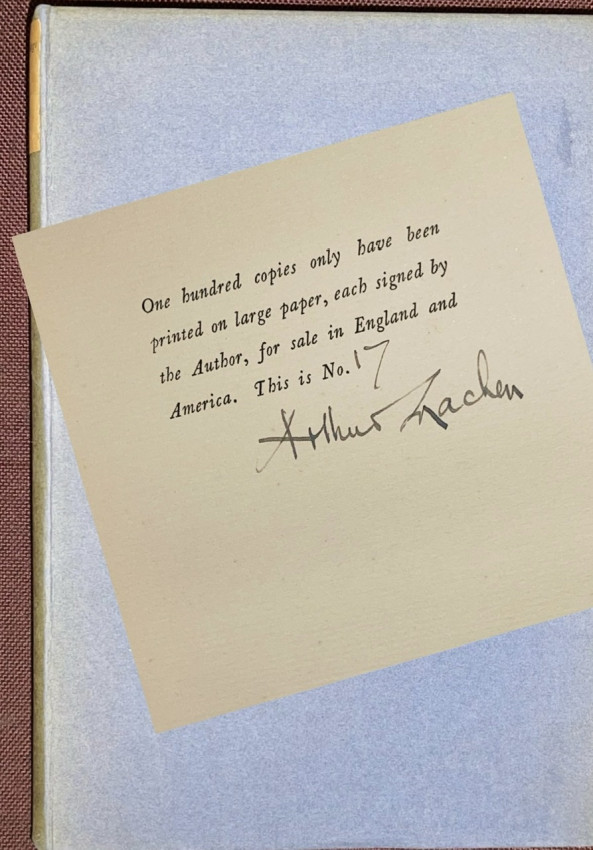 One hundred copies only have been
printed on large paper, each signed by
the Author, for sale in England and
America. This is No. 17
Arthur Machen